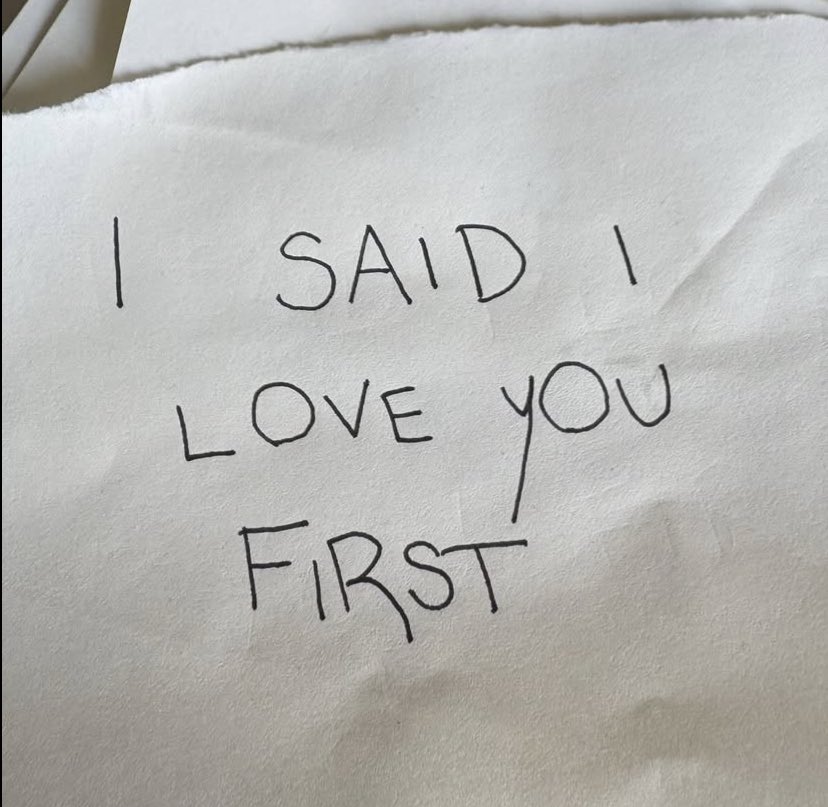 I SAID I
LOVE YOU
FIRST